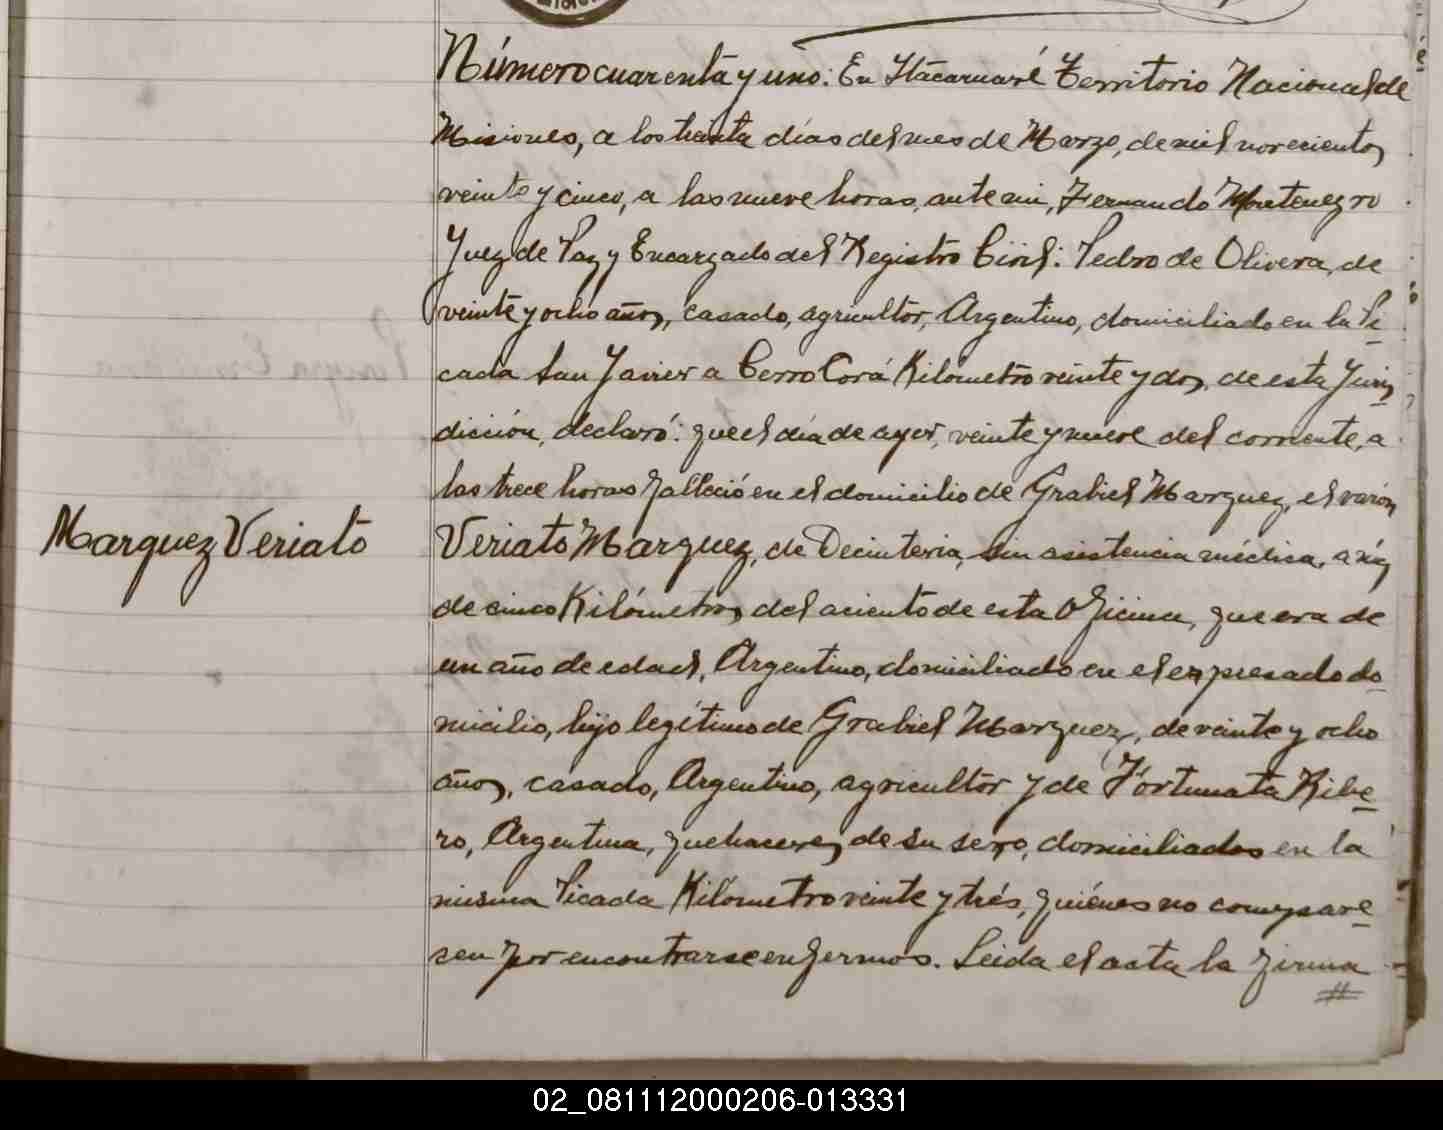 Número cuarenta y uno: En Itacaruaré Territorio Nacional de
Misiones, a los treinta días del mes de Marzo, de mil novecientos
veinte y cinco, a las nueve horas, ante mi, Fernando Montenegro
Juez de Paz y Encargado del Registro Civil: Pedro de Olivera, de
veinte y ocho años, casado, agricultor, Argentino, domiciliado en la Pi
cada San Javier a Cerro Corá Kilómetro veinte y dos, de esta Juris
dicción, declaró: que el día de ayer, veinte y nueve del corriente, a
las trece horas falleció en el domicilio de Grabiel Marquez, el varón
Marquez Veriato
Veriato Marquez, de Decinteria, sin asistencia médica, a más
de cinco Kilómetros del aciento de esta Oficina, que era de
un año de edad, Argentino, domiciliado en el expresado do
micilio, hijo legítimo de Grabiel Marquez, de veinte y ocho
años, casado, Argentino, agricultor y de Fortunata Ribe
ro, Argentina, quehaceres de su sexo, domiciliados en la
misma Picada Kilómetro veinte y trés, quiénes no compare
sen por encontrarse enfermos. Leida el acta la firma
02_081112000206-013331